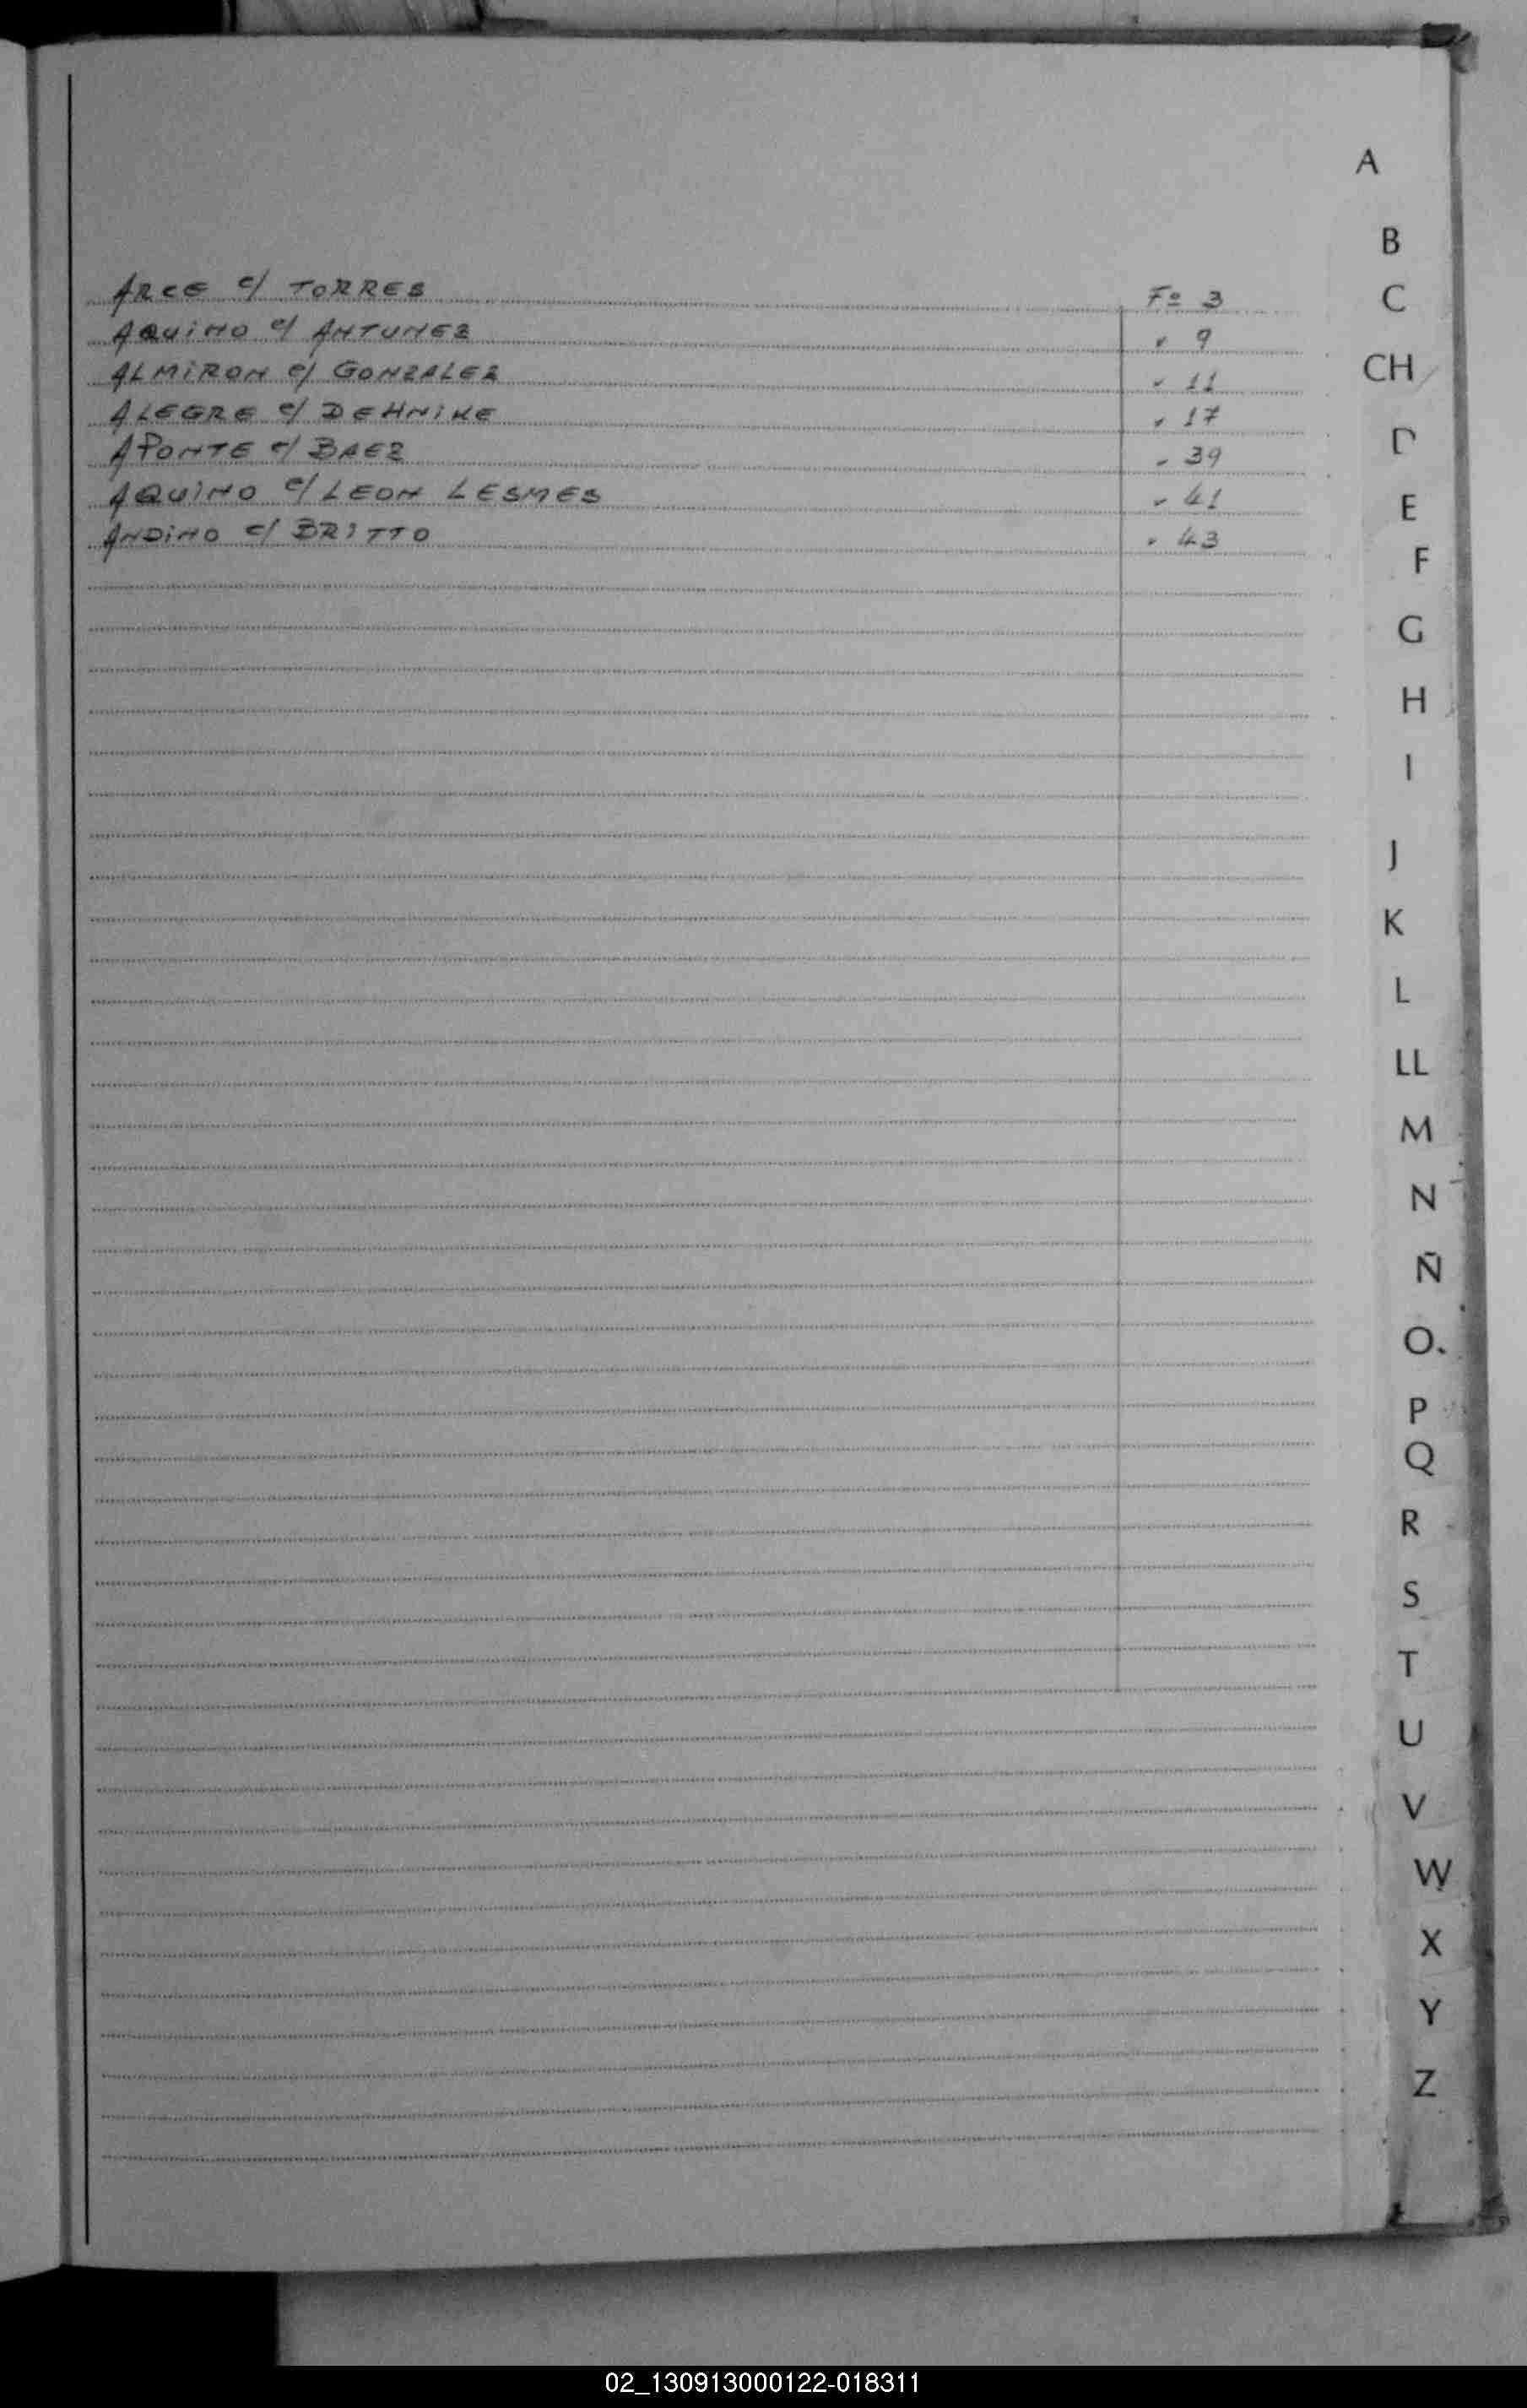 ARCE c/ TORRES Fº 3
AQUINO c/ ANTUNEZ " 9
ALMIRON c/ GONZALEZ " 11
ALEGRE c/ DEHNIKE " 17
APONTE c/ BAEZ " 39
AQUINO c/ LEON LESMES " 41
ANDINO c/ BRITTO " 43
A
B
C
CH
D
E
F
G
H
I
J
K
L
LL
M
N
Ñ
O.
P
Q
R
S
T
U
V
W
X
Y
Z
02_130913000122-018311